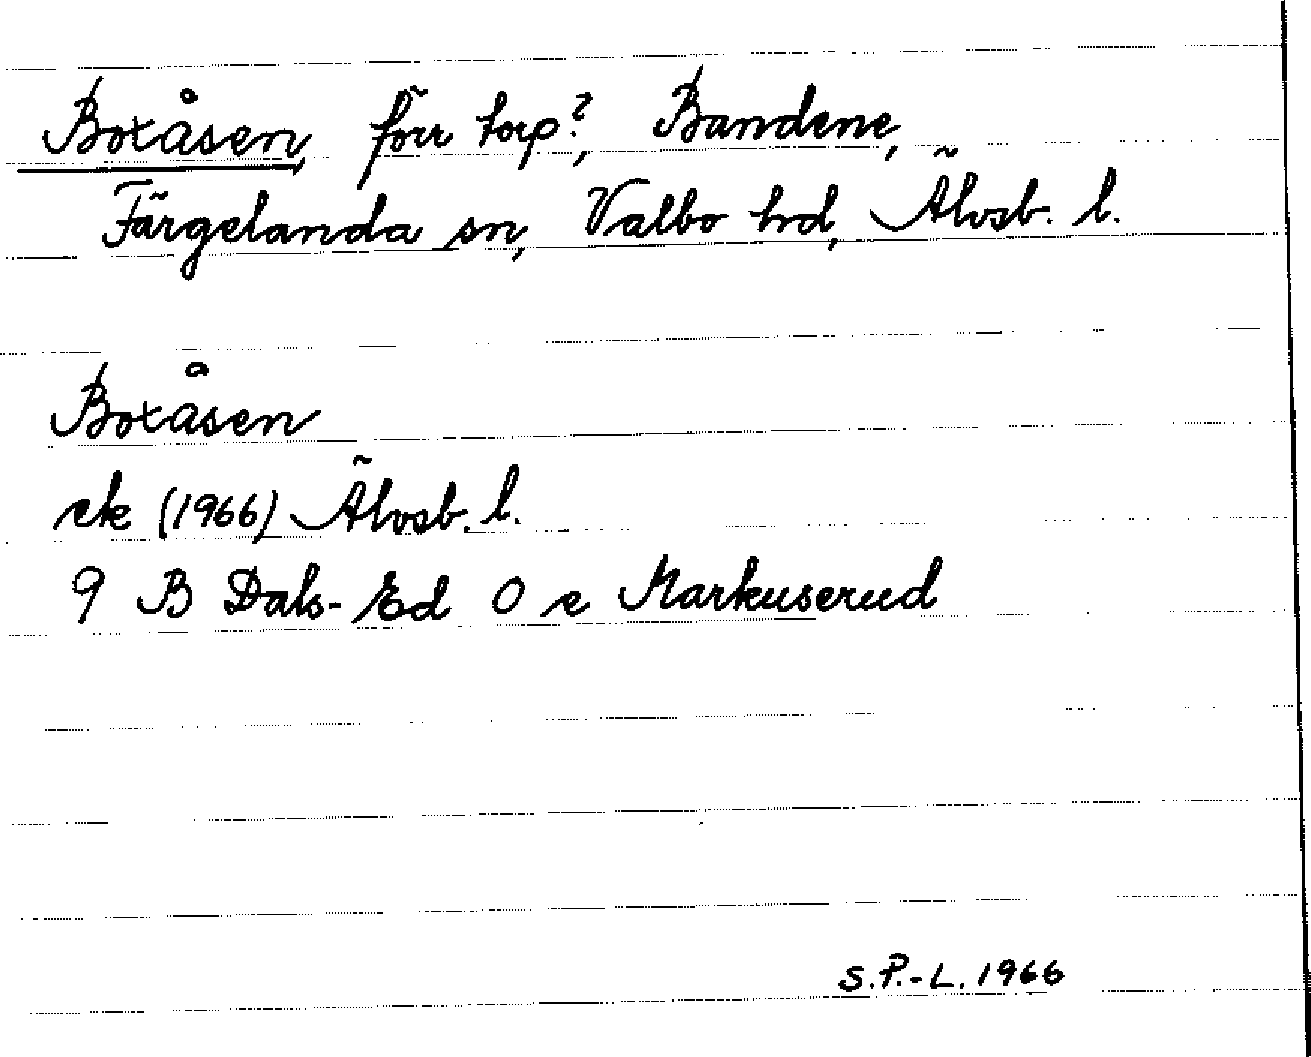 Boxåsen, förr torp?, Bandene,
Färgelanda sn, Valbo hd, Älvsb. l.
Boxåsen
ek (1966) Älvsb. l.
9 B Dals-Ed O e Markuserud
S.P.-L. 1966